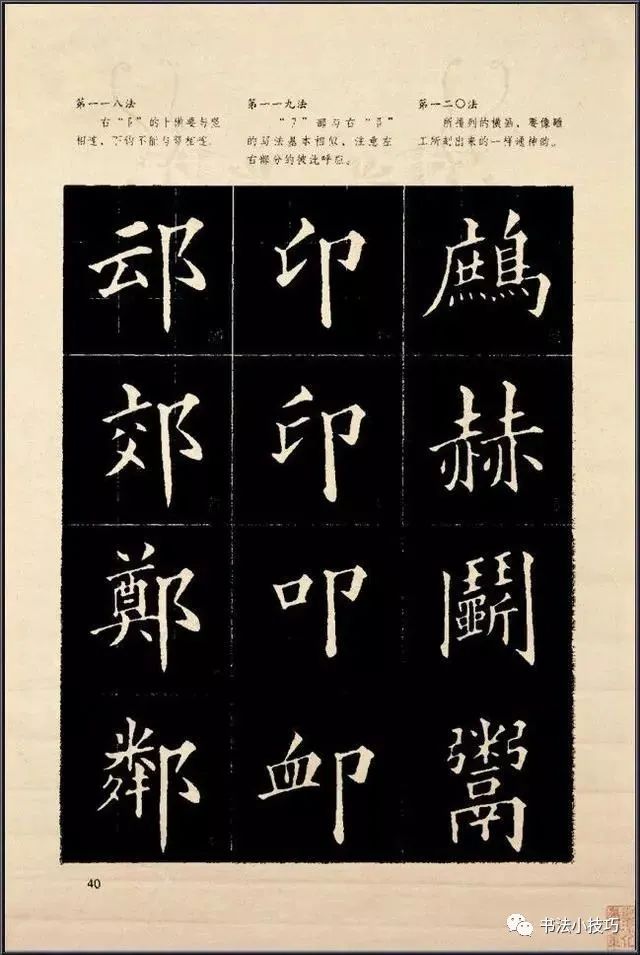 第一一八法
右“阝”的上撇要与竖
相连，下钩不能与竖相连。
第一一九法
“卩”部与右“阝”
的写法基本相似，注意左
右部分的彼此呼应。
第一二〇法
所排列的横画，要像雕
工所刻出来的一样
䢵 印 鷓
郊 印 赫
鄭 叩 鬭
鄰 卹 鬻
40
书法小技巧